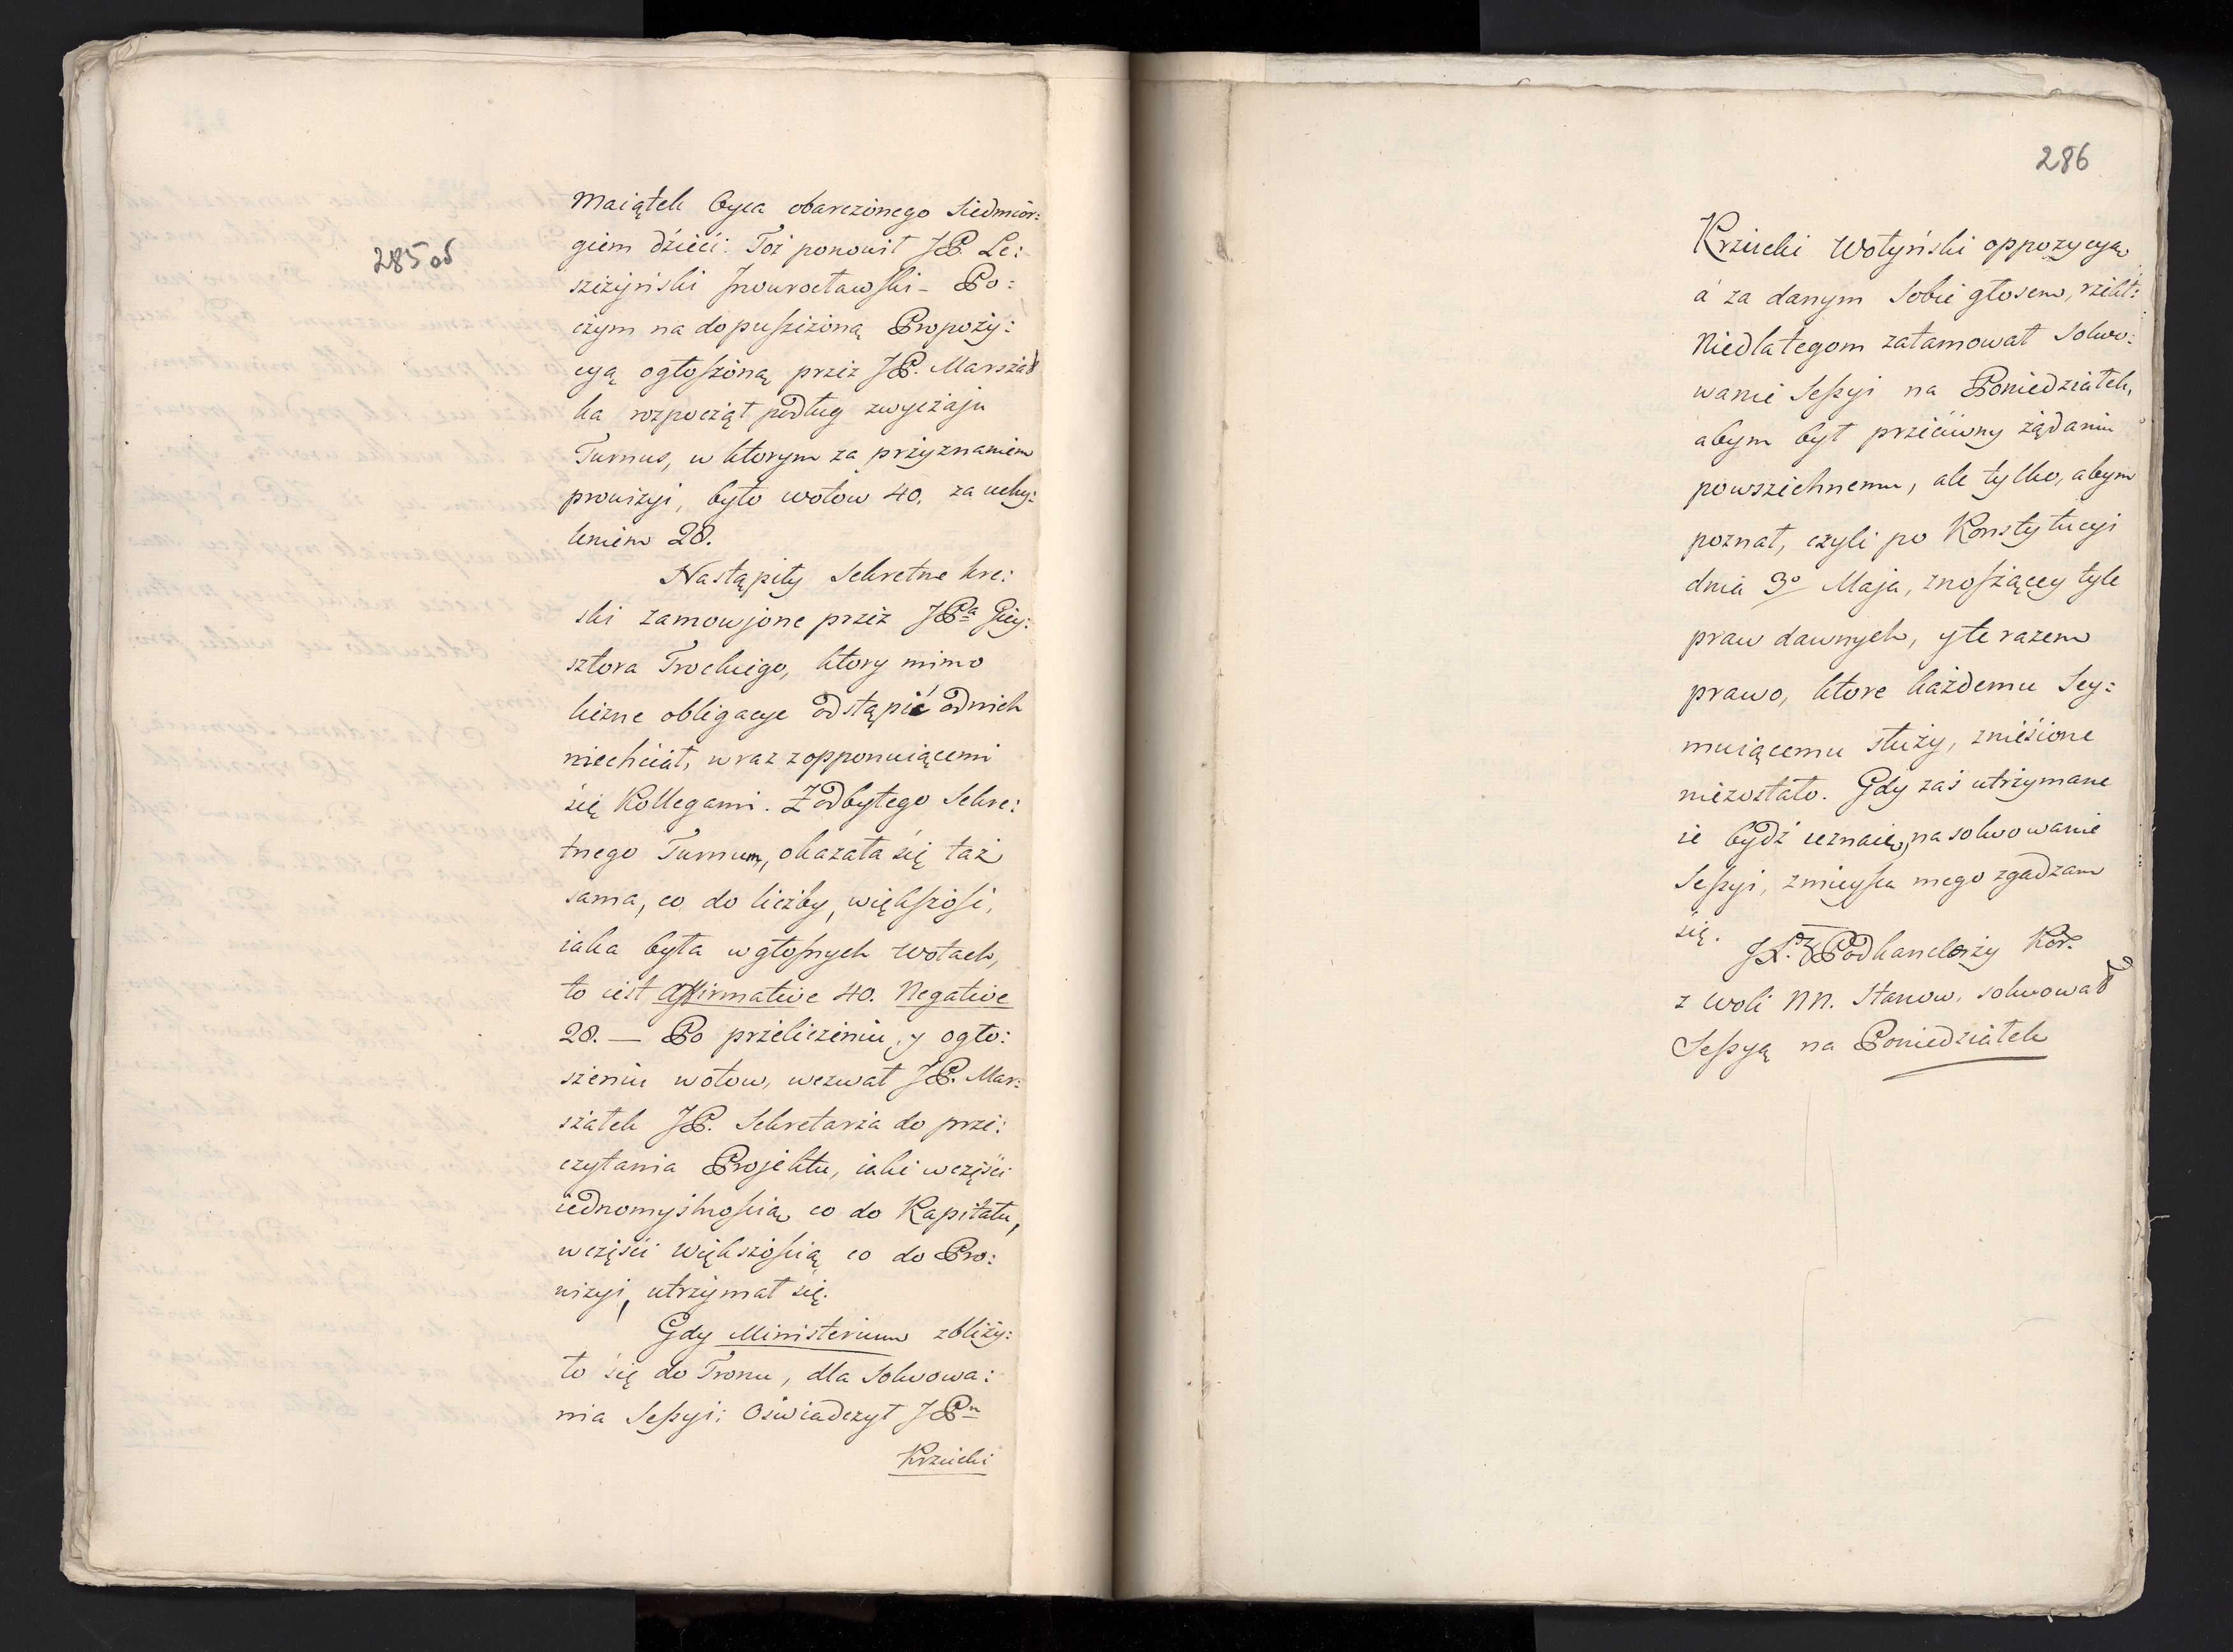 285 od
Maiątek Oyca obarczonego siedmior:
giem dzieci: Toż ponowił JP. Le:
szczyński Inowrocławski – Po:
czym na dopuszczoną Propozy:
cyą ogłoszoną przez JP. Marszał
ka rozpoczął podług zwyczaju
Turnus, w ktorym za przyznaniem
prowizyi, było wotow 40. za uchy:
leniem 28.
Nastąpiły sekretne kre:
ski zamowione przez JPa Giey:
sztora Trockiego, ktory mimo
liczne obligacye odstąpić od nich
niechciał, wraz z opponuiącemi
się Kollegami. Z odbytego Sekre:
tnego Turnum, okazała się taż
sama, co do liczby, większość,
iaka była w głośnych wotach,
to iest Affirmative 40. Negative
28. — Po przeliczeniu, y ogło:
szeniu wotow, wezwał JP. Mar:
szałek JP. Sekretarza do prze:
czytania Projektu, iaki w części
iednomyślnością co do Kapitału,
w części większością co do Pro:
wizyi, utrzymał się.
Gdy Ministerium zbliży:
ło się do Tronu, dla solwowa:
nia Sessyi; Oświadczył JPn
Krzucki
286
Krzucki Wołyński oppozycyą
á za danym sobie głosem, rzekł:
Niedlategom zatamował solwo:
wanie Sessyi na Poniedziałek,
abym był przeciwny żądaniu
powszechnemu, ale tylko, abym
poznał, czyli po Konstytucyi
dnia 3o Maja, znoszącey tyle
praw dawnych, y te razem
prawo, ktore każdemu Sey:
muiącemu służy, zniesione
niezostało. Gdy zaś utrzymane
ie bydź uznaię, na solwowanie
Sessyi, z mieysca mego zgadzam
się.
JX. Podkanclerzy Kor.
z woli NN. Stanow, solwował
Sessyą na Poniedziałek